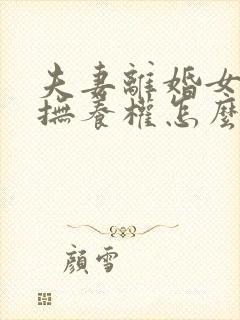 夫妻離婚女
撫養權怎麼
顏雪